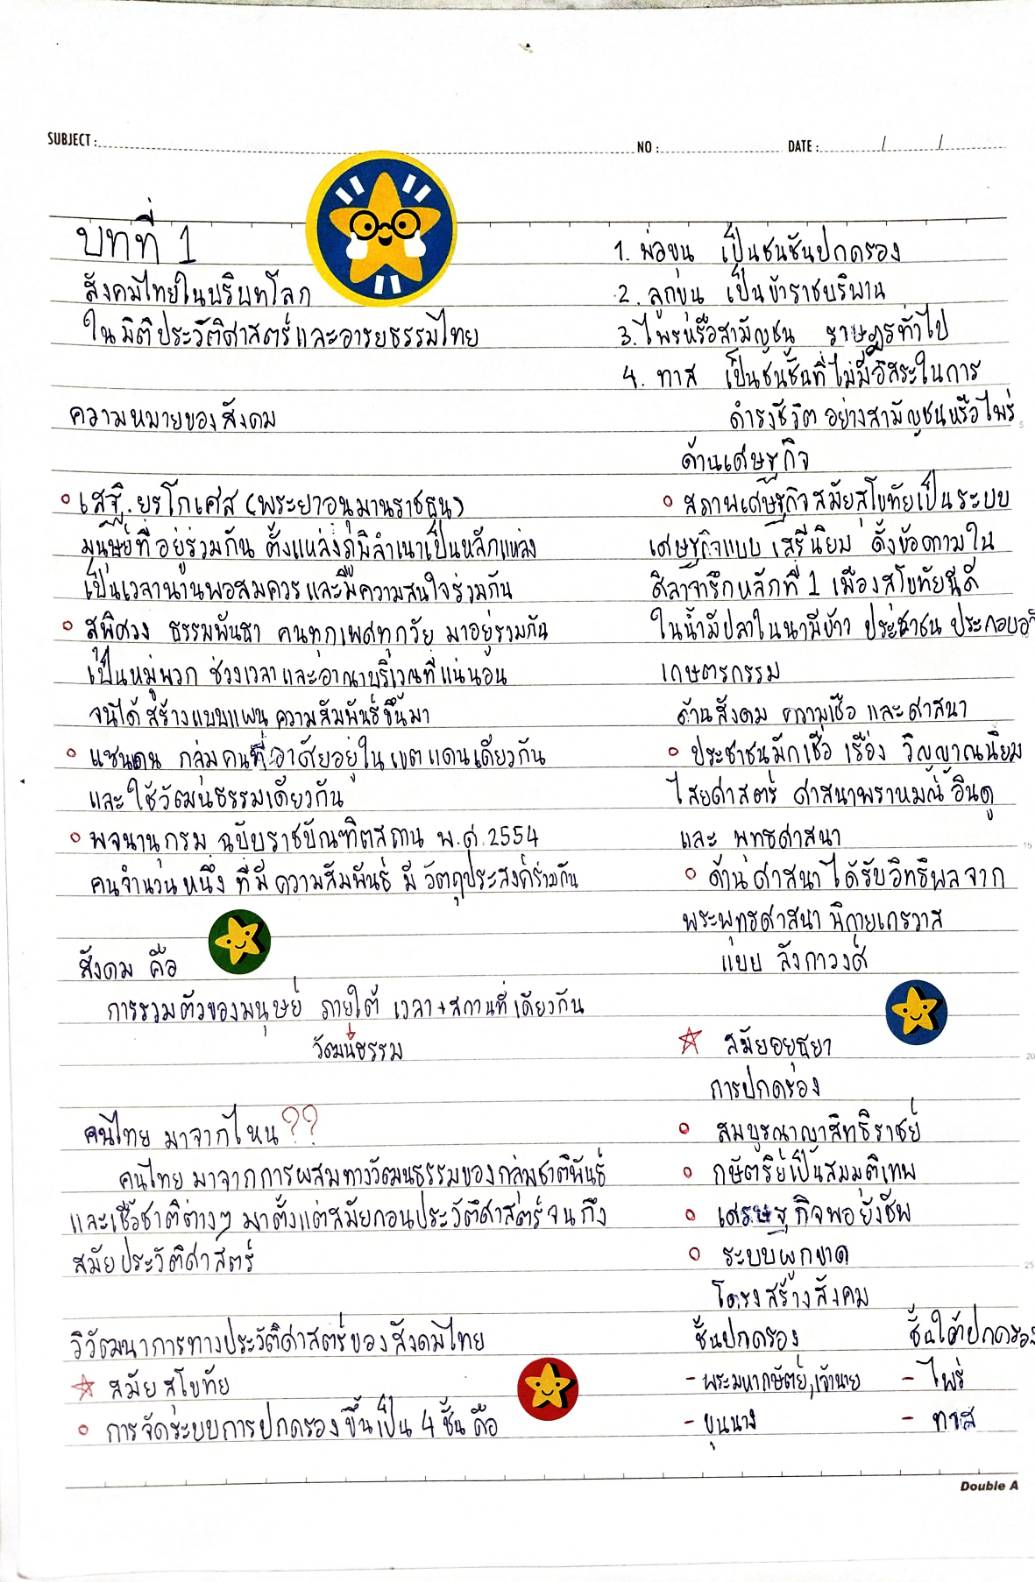 SUBJECT :
NO :
DATE : / /
บทที่ 1
สังคมไทยในบริบทโลก
ในมิติประวัติศาสตร์และอารยธรรมไทย
ความหมายของสังคม
เสฐียรโกเศส (พระยาอนุมานราชธน)
มนุษย์ที่อยู่ร่วมกัน ตั้งแหล่งภูมิลำเนาเป็นหลักแหล่ง
เป็นเวลานานพอสมควร และมีความสนใจร่วมกัน
สุพิศวง ธรรมพันธา คนทุกเพศทุกวัย มาอยู่รวมกัน
เป็นหมู่พวก ช่วงเวลา และอาณาบริเวณที่แน่นอน
จนได้ สร้างแบบแผน ความสัมพันธ์ขึ้นมา
แซนเดน กลุ่มคนที่อาศัยอยู่ใน เขตแดนเดียวกัน
และ ใช้วัฒนธรรมเดียวกัน
พจนานุกรม ฉบับราชบัณฑิตสถาน พ.ศ. 2554
คนจำนวนหนึ่ง ที่มี ความสัมพันธ์ มี วัตถุประสงค์ร่วมกัน
สังคม คือ
การรวมตัวของมนุษย์ ภายใต้ เวลา + สถานที่เดียวกัน
วัฒนธรรม
คนไทย มาจากไหน ??
คนไทย มาจากการผสมทางวัฒนธรรมของกลุ่มชาติพันธุ์
และเชื้อชาติต่างๆ มาตั้งแต่สมัยก่อนประวัติศาสตร์จนถึง
สมัยประวัติศาสตร์
วิวัฒนาการทางประวัติศาสตร์ของสังคมไทย
☆ สมัยสุโขทัย
การจัดระบบการปกครองขึ้นเป็น 4 ชั้น คือ
1. พ่อขุน เป็นชนชั้นปกครอง
2. ลูกขุน เป็นข้าราชบริพาน
3. ไพร่หรือสามัญชน ราษฎรทั่วไป
4. ทาส เป็นชั้นชั้นที่ไม่มีอิสระในการ
ดำรงชีวิต อย่างสามัญชนหรือไพร่
ด้านเศษฐกิจ
สภาพเศษฐกิจสมัยสุโขทัยเป็นระบบ
เศษฐกิจแบบ เสรีนิยม ดังข้อความใน
ศิลาจารึกหลักที่ 1 เมืองสุโขทัยนี้ดี
ในน้ำมีปลาในนามีข้าว ประชาชน ประกอบ
เกษตรกรรม
ด้านสังคม ความเชื่อ และศาสนา
ประชาชนมักเชื่อ เรื่อง วิญญาณนิยม
ไสยศาสตร์ ศาสนาพราหมณ์ ฮินดู
และ พุทธศาสนา
ด้านศาสนา ได้รับอิทธิพลจาก
พระพุทธศาสนา นิกายเถรวาส
แบบ ลังกาวงศ์
☆ สมัยอยุธยา
การปกครอง
สมบูรณาญาสิทธิราชย์
กษัตริย์เป็นสมมุติเทพ
เศรษฐกิจพอยังชีพ
ระบบผูกขาด
โครงสร้างสังคม
ชั้นปกครอง ชั้นใต้ปกครอง
- พระมหากษัตย์, เจ้านาย - ไพร่
- ขุนนาง - ทาส
Double A